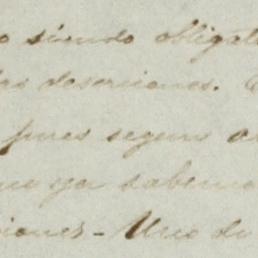 o siendo obligato
las deserciones.
pues segun a
que ya sabemo
iones - Uno de